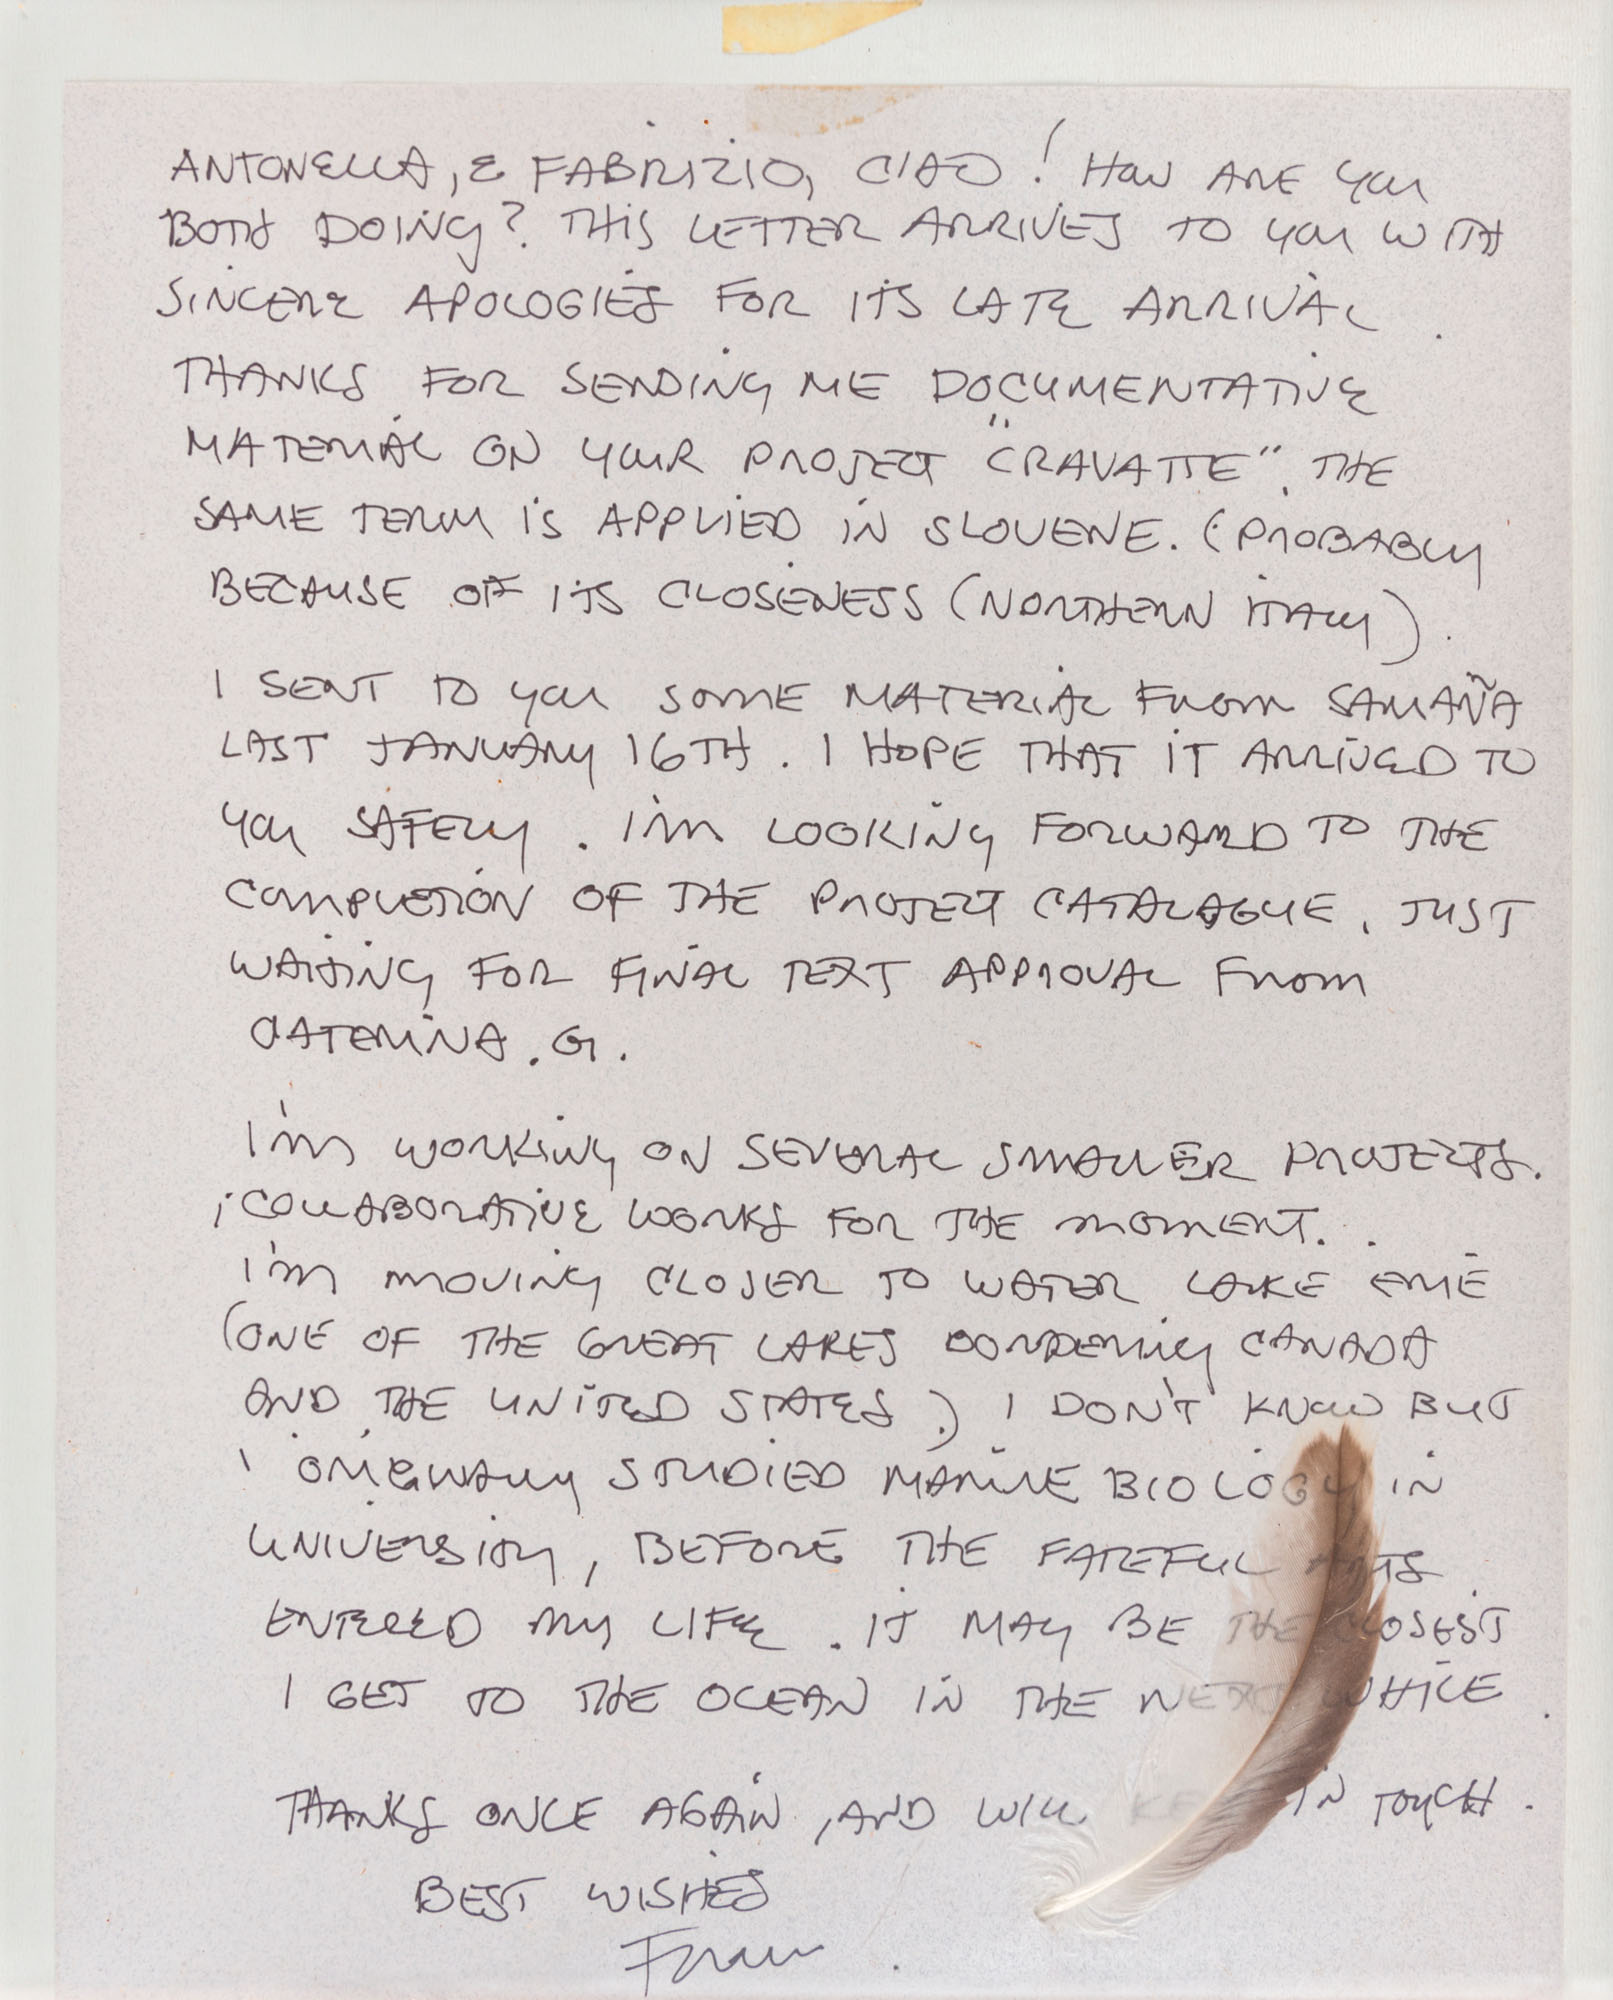 ANTONELLA, & FABRIZIO, CIAO! HOW ARE YOU
BOTH DOING? THIS LETTER ARRIVES TO YOU WITH
SINCERE APOLOGIES FOR ITS LATE ARRIVAL.
THANKS FOR SENDING ME DOCUMENTATIVE
MATERIAL ON YOUR PROJECT "CRAVATTE". THE
SAME TERM IS APPLIED IN SLOVENE. (PROBABLY
BECAUSE OF ITS CLOSENESS (NORTHERN ITALY).
I SENT TO YOU SOME MATERIAL FROM SAMAÑA
LAST JANUARY 16TH. I HOPE THAT IT ARRIVED TO
YOU SAFELY. I'M LOOKING FORWARD TO THE
COMPLETION OF THE PROJECT CATALAGUE, JUST
WAITING FOR FINAL TEXT APPROVAL FROM
CATERINA. G.
I'M WORKING ON SEVERAL SMALLER PROJECTS.
; COLLABORATIVE WORKS FOR THE MOMENT..
I'M MOVING CLOSER TO WATER LAKE ERIE
(ONE OF THE GREAT LAKES BORDERING CANADA
AND THE UNITED STATES.) I DON'T KNOW BUT
I ORIGINALLY STUDIED MARINE BIOLOGY IN
UNIVERSITY, BEFORE THE FATEFUL ARTS
ENTERED MY LIFE. IT MAY BE THE CLOSEST
I GET TO THE OCEAN IN THE NEXT WHILE.
THANKS ONCE AGAIN, AND WILL KEEP IN TOUCH.
BEST WISHES